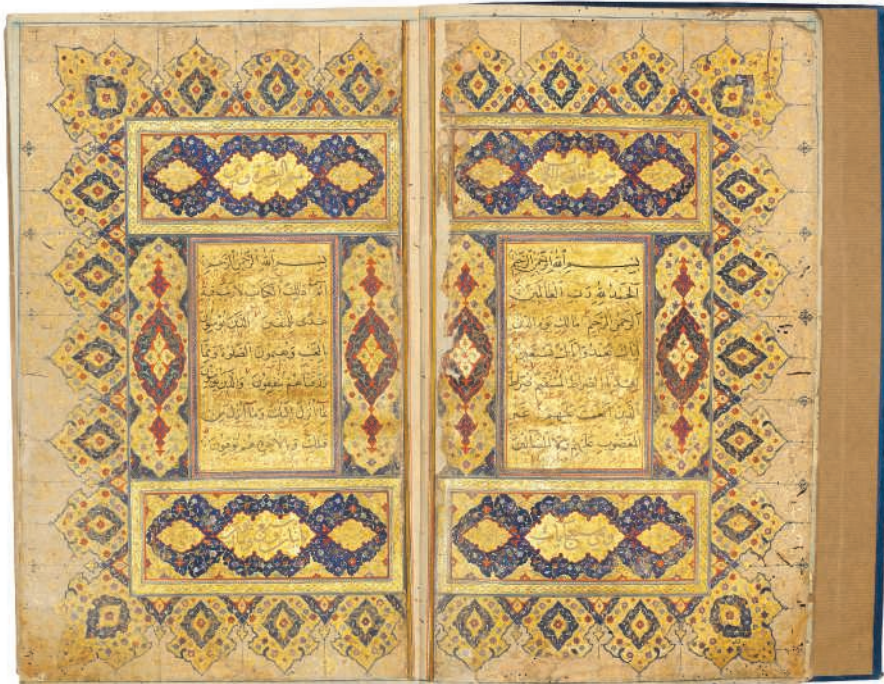 بسم الله الرحمن الرحيم
الحمد لله رب العالمين
الرحمن الرحيم مالك يوم الدين
اياك نعبد واياك نستعين
اهدنا الصراط المستقيم صراط
الذين انعمت عليهم غير
المغضوب عليهم ولا الضالين
بسم الله الرحمن الرحيم
الم ذلك الكتاب لا ريب فيه
هدى للمتقين الذين يؤمنون
بالغيب ويقيمون الصلوة ومما
رزقناهم ينفقون والذين يؤمنون
بما انزل اليك وما انزل من
قبلك وبالاخرة هم يوقنون